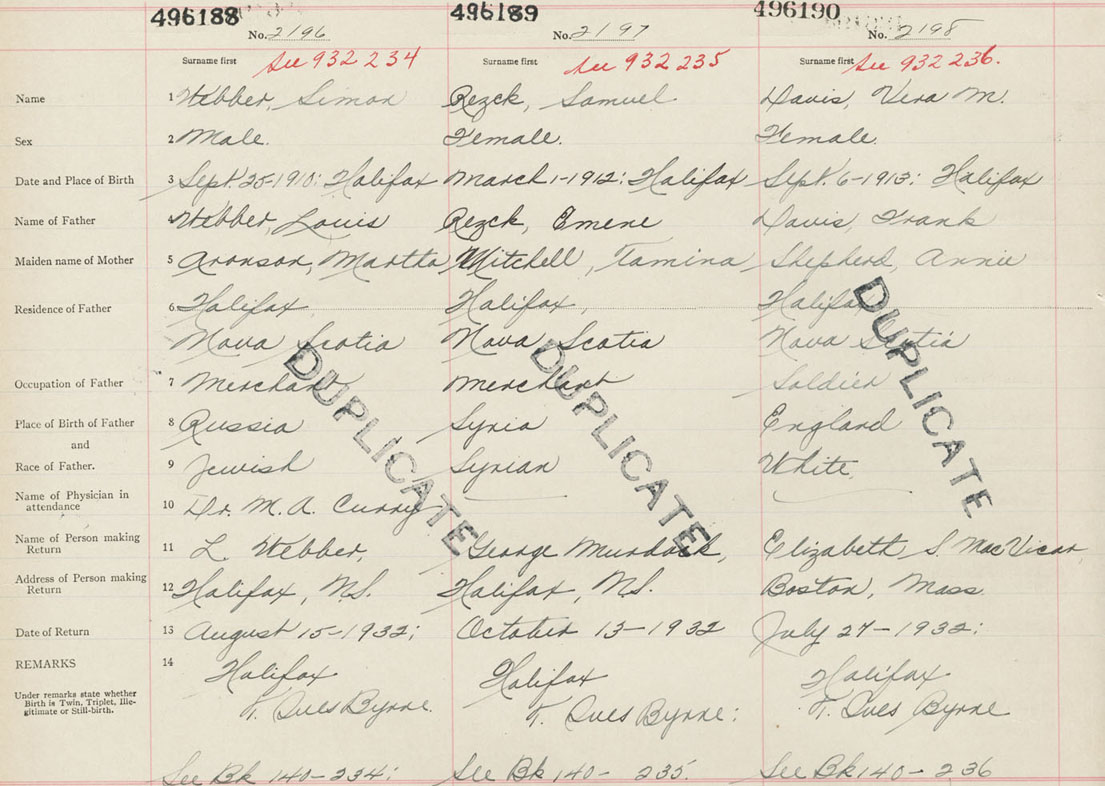 496188 496189 496190
No. 2196 No. 2197 No. 2198
Surname first See 932 234 Surname first See 932 235 Surname first See 932 236.
Name 1 Webber, Simon Rezck, Samuel. Davis, Vera M.
Sex 2 Male. Female. Female.
Date and Place of Birth 3 Sept. 25-1910: Halifax March 1-1912: Halifax Sept. 6-1913: Halifax
Name of Father 4 Webber, Louis Rezck, Emene Davis, Frank
Maiden name of Mother 5 Aronson, Martha Mitchell, Tamina Shepherd, Annie
Residence of Father 6 Halifax, Halifax, Halifax
Nova Scotia Nova Scotia Nova Scotia
Occupation of Father 7 Merchant Merchant Soldier
Place of Birth of Father 8 Russia Syria England
and
Race of Father. 9 Jewish Syrian White
Name of Physician in
attendance 10 Dr. M. A. Curry
Name of Person making
Return 11 L. Webber, George Murdock, Elizabeth S. MacVicar
Address of Person making
Return 12 Halifax, N.S. Halifax, N.S. Boston, Mass.
Date of Return 13 August 15-1932; October 13-1932 July 27-1932;
REMARKS 14 Halifax Halifax Halifax
Under remarks state whether
Birth is Twin, Triplet, Ille-
gitimate or Still-birth.
Ives Byrne. Ives Byrne: Ives Byrne
See Bk 140-234; See Bk 140-235. See Bk 140-236
DUPLICATE DUPLICATE DUPLICATE